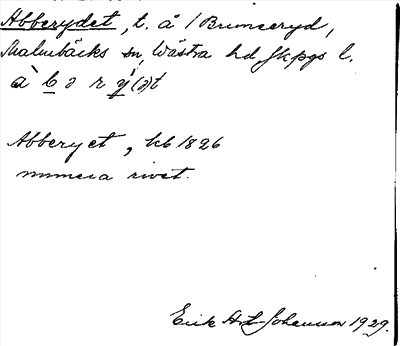 Abberydet, t. å /Brunseryd,
Malmbäcks sn, Västra hd Jkpgs l.
à b ə r ý (ə)t
Abberyet, kb 1826
numera rivet.
Erik Johansson 1929.